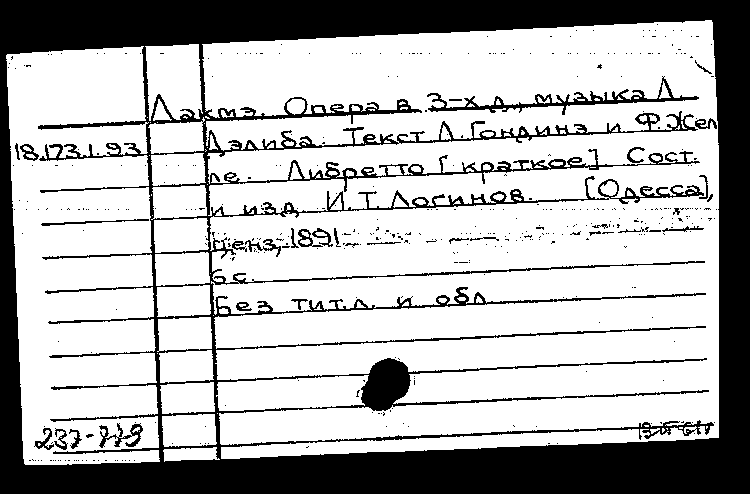 Лакмэ. Опера в 3-х д., музыка Л.
18.173.1.93 Дэлиба. Текст Л. Гондинэ и Ф. Жел
ле. Либретто [краткое]. Сост.
и изд. И.Т. Логинов. [Одесса],
ценз. 1891
6 с.
Без тит. л. и обл.